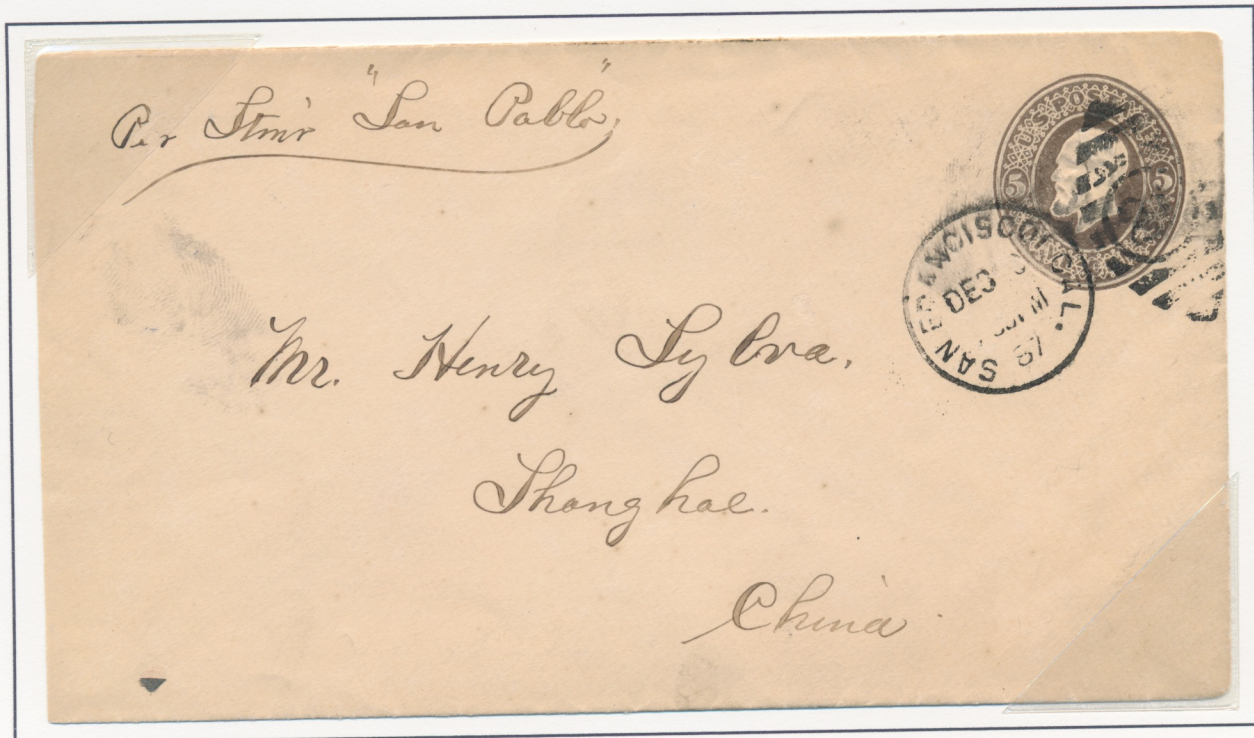 Per Stmr "San Pablo",
U.S. POSTAGE
5 5
SAN FRANCISCO, CAL.
DEC
87
Mr. Henry Sylva.
Shanghae.
China.